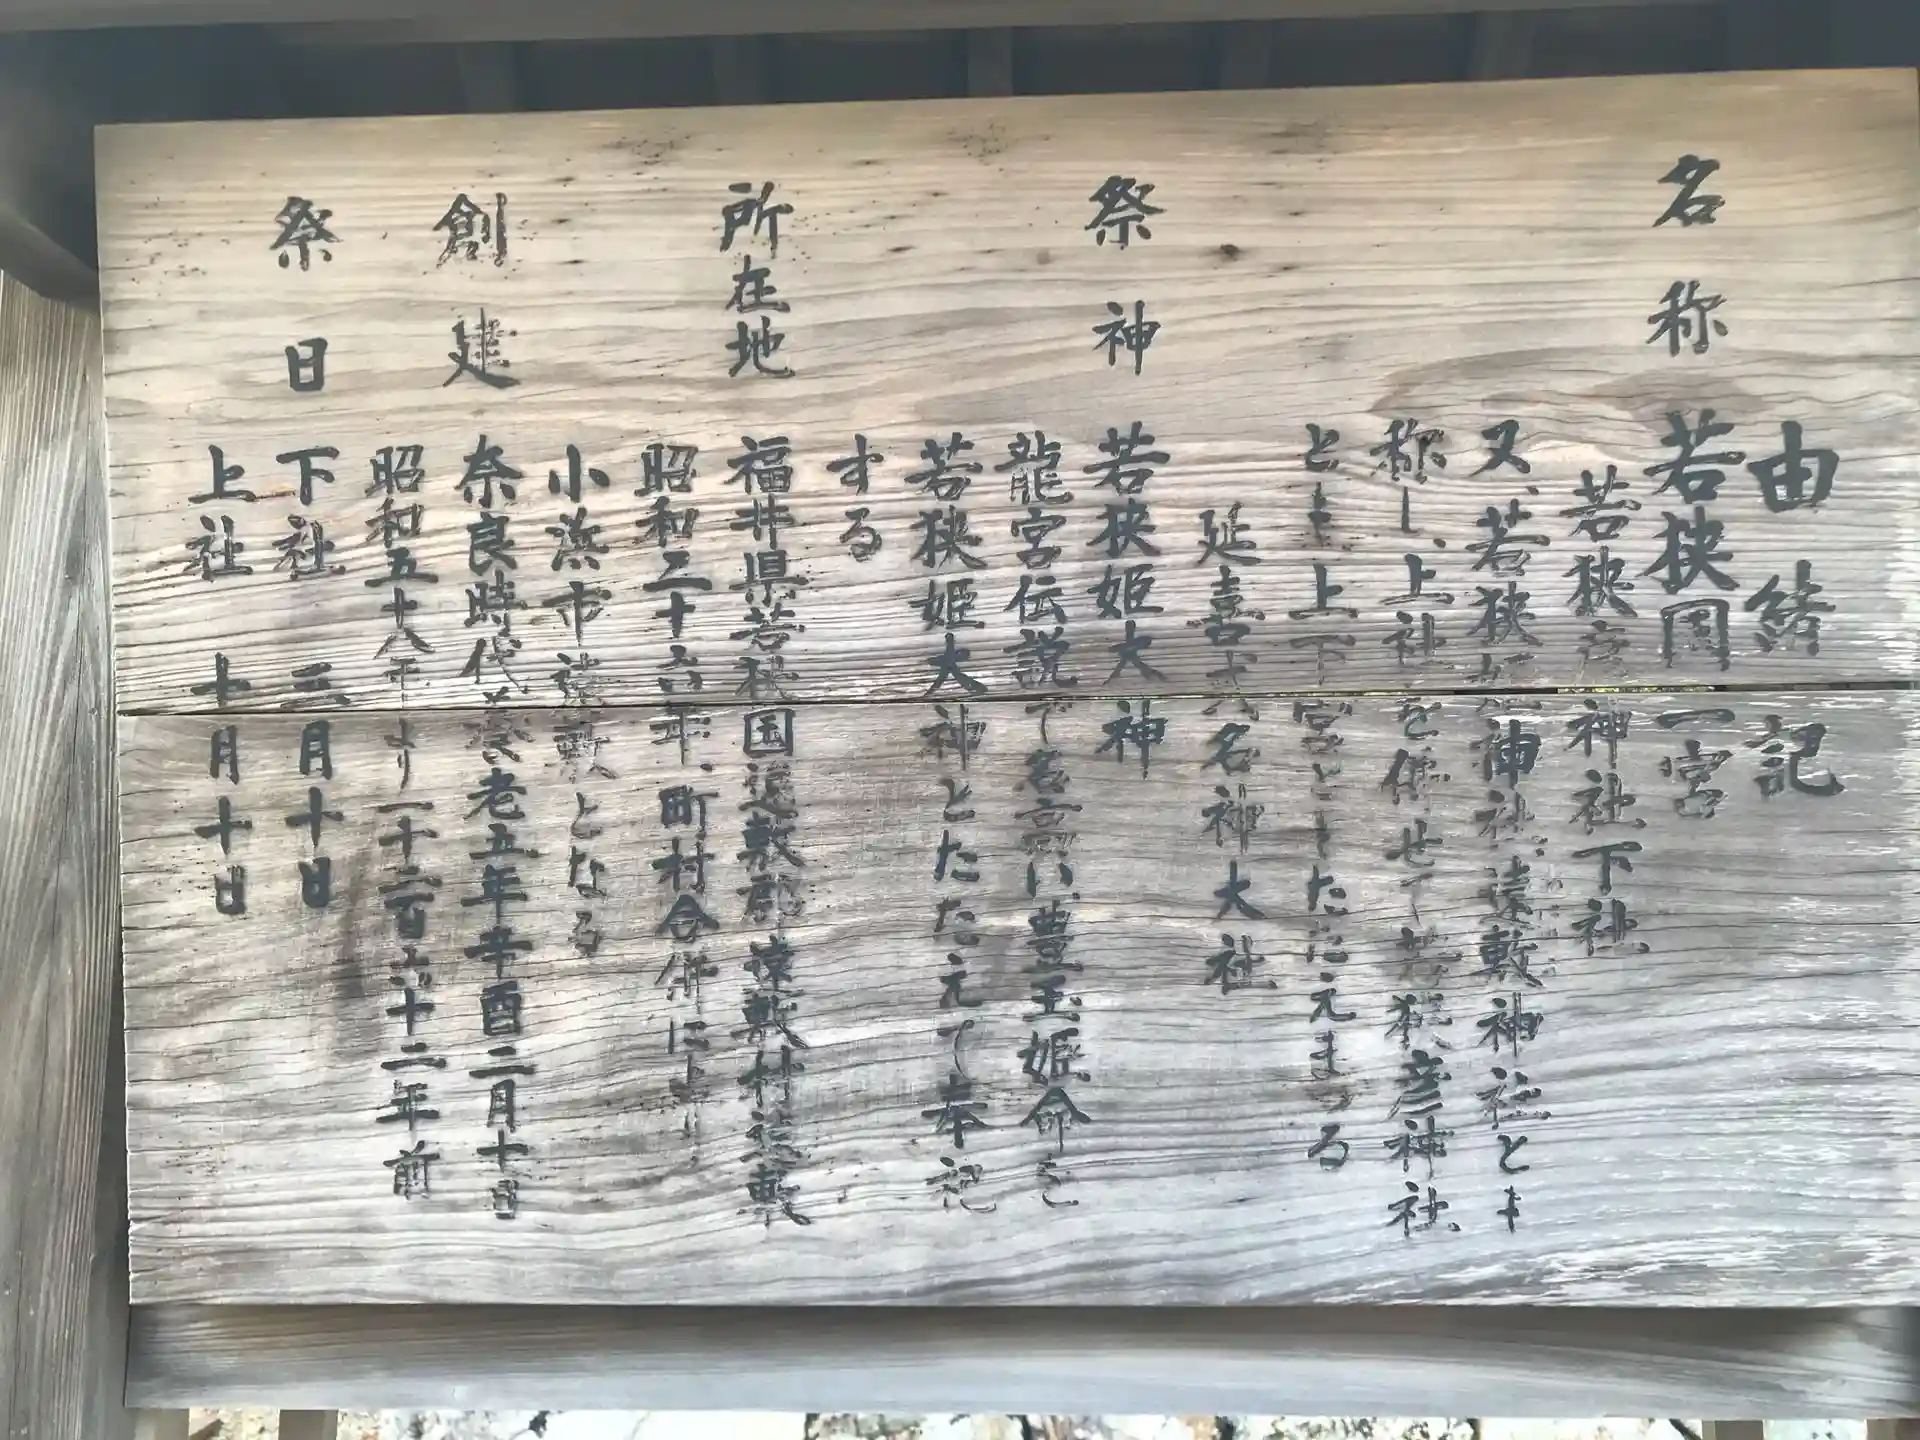 由緒記
名称 若狭国一宮
若狭彦神社下社
又、若狭姫神社、遠敷神社とも
称し、上社を併せて若狭彦神社
とも上下宮ともたたえまつる
延喜式名神大社
祭神 若狭姫大神
龍宮伝説で名高い豊玉姫命を
若狭姫大神とたたえて奉祀
する
所在地 福井県若狭国遠敷郡遠敷村遠敷
昭和三十六年、町村合併により
小浜市遠敷となる
創建 奈良時代、養老五年辛酉二月十日
昭和五十八年より一千二百六十二年前
祭日 下社 三月十日
上社 十月十日